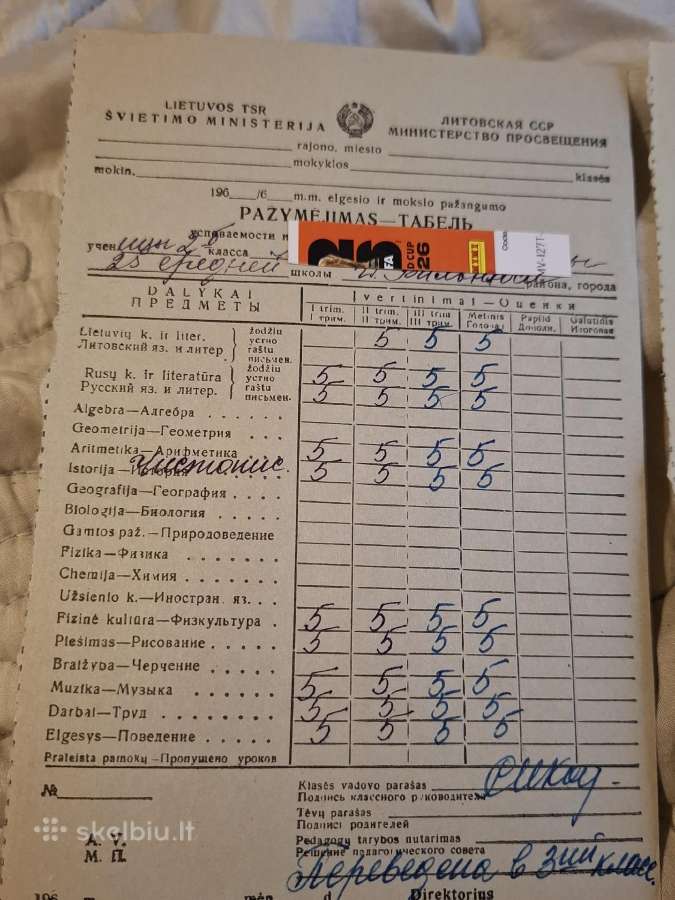 LIETUVOS TSR
ŠVIETIMO MINISTERIJA
ЛИТОВСКАЯ ССР
МИНИСТЕРСТВО ПРОСВЕЩЕНИЯ
rajono, miesto
mokyklos
mokin. klasės
196 /6 m.m. elgesio ir mokslo pažangumo
PAŽYMĖJIMAS—ТАБЕЛЬ
успеваемости и
учен ицы 2 в класса
26
FA
D CUP
26
MINI
Code
MV-127T-
25 средней школы г. Вильнюса района, города
DALYKAI
ПРЕДМЕТЫ
Įvertinimai—Оценки
I trim. II trim. III trim Metinis Papild Galutinis
I трим. II трим. III трим. Годовы Дополн. Итоговая
Lietuvių k. ir liter. žodžiu
Литовский яз. и литер устно 5 5 5
raštu
письмен.
Rusų k. ir literatūra žodžiu
устно 5 5 5 5
Русский яз. и литер. raštu
письмен. 5 5 5 5
Algebra—Алгебра
Geometrija—Геометрия
Aritmetika—Арифметика 5 5 5 5
Istorija—История Чистопис. 5 5 5 5
Geografija—География
Biologija—Биология
Gamtos paž.—Природоведение
Fizika—Физика
Chemija—Химия
Užsienio k.—Иностран. яз.
Fizinė kultūra—Физкультура 5 5 5 5
Piešimas—Рисование 5 5 5 5
Braižyba—Черчение
Muzika—Музыка 5 5 5 5
Darbai—Труд 5 5 5 5
Elgesys—Поведение 5 5 5 5
Praleista pamokų—Пропущено уроков
№
Klasės vadovo parašas
Подпись классного руководителя
Tėvų parašas
Подпись родителей
Pedagogų tarybos nutarimas
Решение педагогического совета
Переведена в 3ий класс.
A. V.
М. П.
196 m. mėn. d. Direktorius
skelbiu.lt